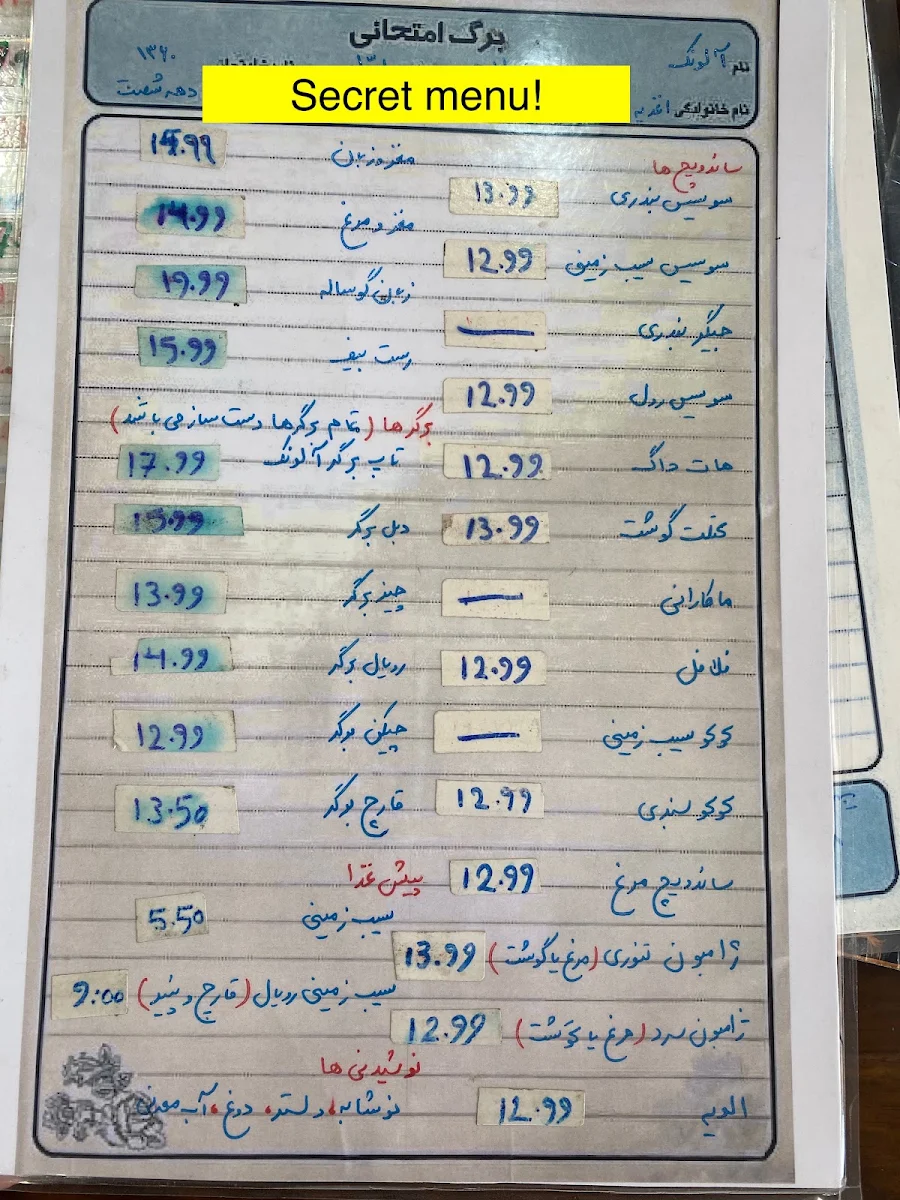 برگ امتحانی
نام آلونک
۱۳۶۰
نام خانوادگی اغذیه
دهه شصت
Secret menu!
ساندویچ ها
سوسیس بندری 13.99
سوسیس سیب زمینی 12.99
جیگر بندری —
سوسیس رول 12.99
هات داگ 12.99
کتلت گوشت 13.99
ماکارانی —
فلافل 12.99
کوکو سیب زمینی —
کوکو سبزی 12.99
ساندویچ مرغ 12.99
ژامبون تنوری (مرغ یا گوشت) 13.99
ژامبون سرد (مرغ یا گوشت) 12.99
الویه 12.99
مغز و زبان 15.99
مغز و مرغ 14.99
زبان گوساله 19.99
رست بیف 15.99
برگرها (تمام برگرها دست ساز می باشد)
تاپ برگر آلونک 17.99
دبل برگر 15.99
چیز برگر 13.99
رویال برگر 14.99
چیکن برگر 12.99
قارچ برگر 13.50
پیش غذا
سیب زمینی 5.50
سیب زمینی رویال (قارچ و پنیر) 9.00
نوشیدنی ها
نوشابه، دلستر، دوغ، آب معدنی